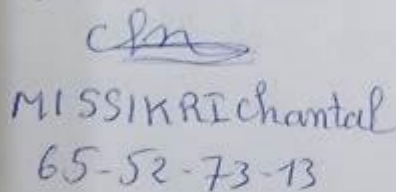 MISSIKRI Chantal
65-52-73-13